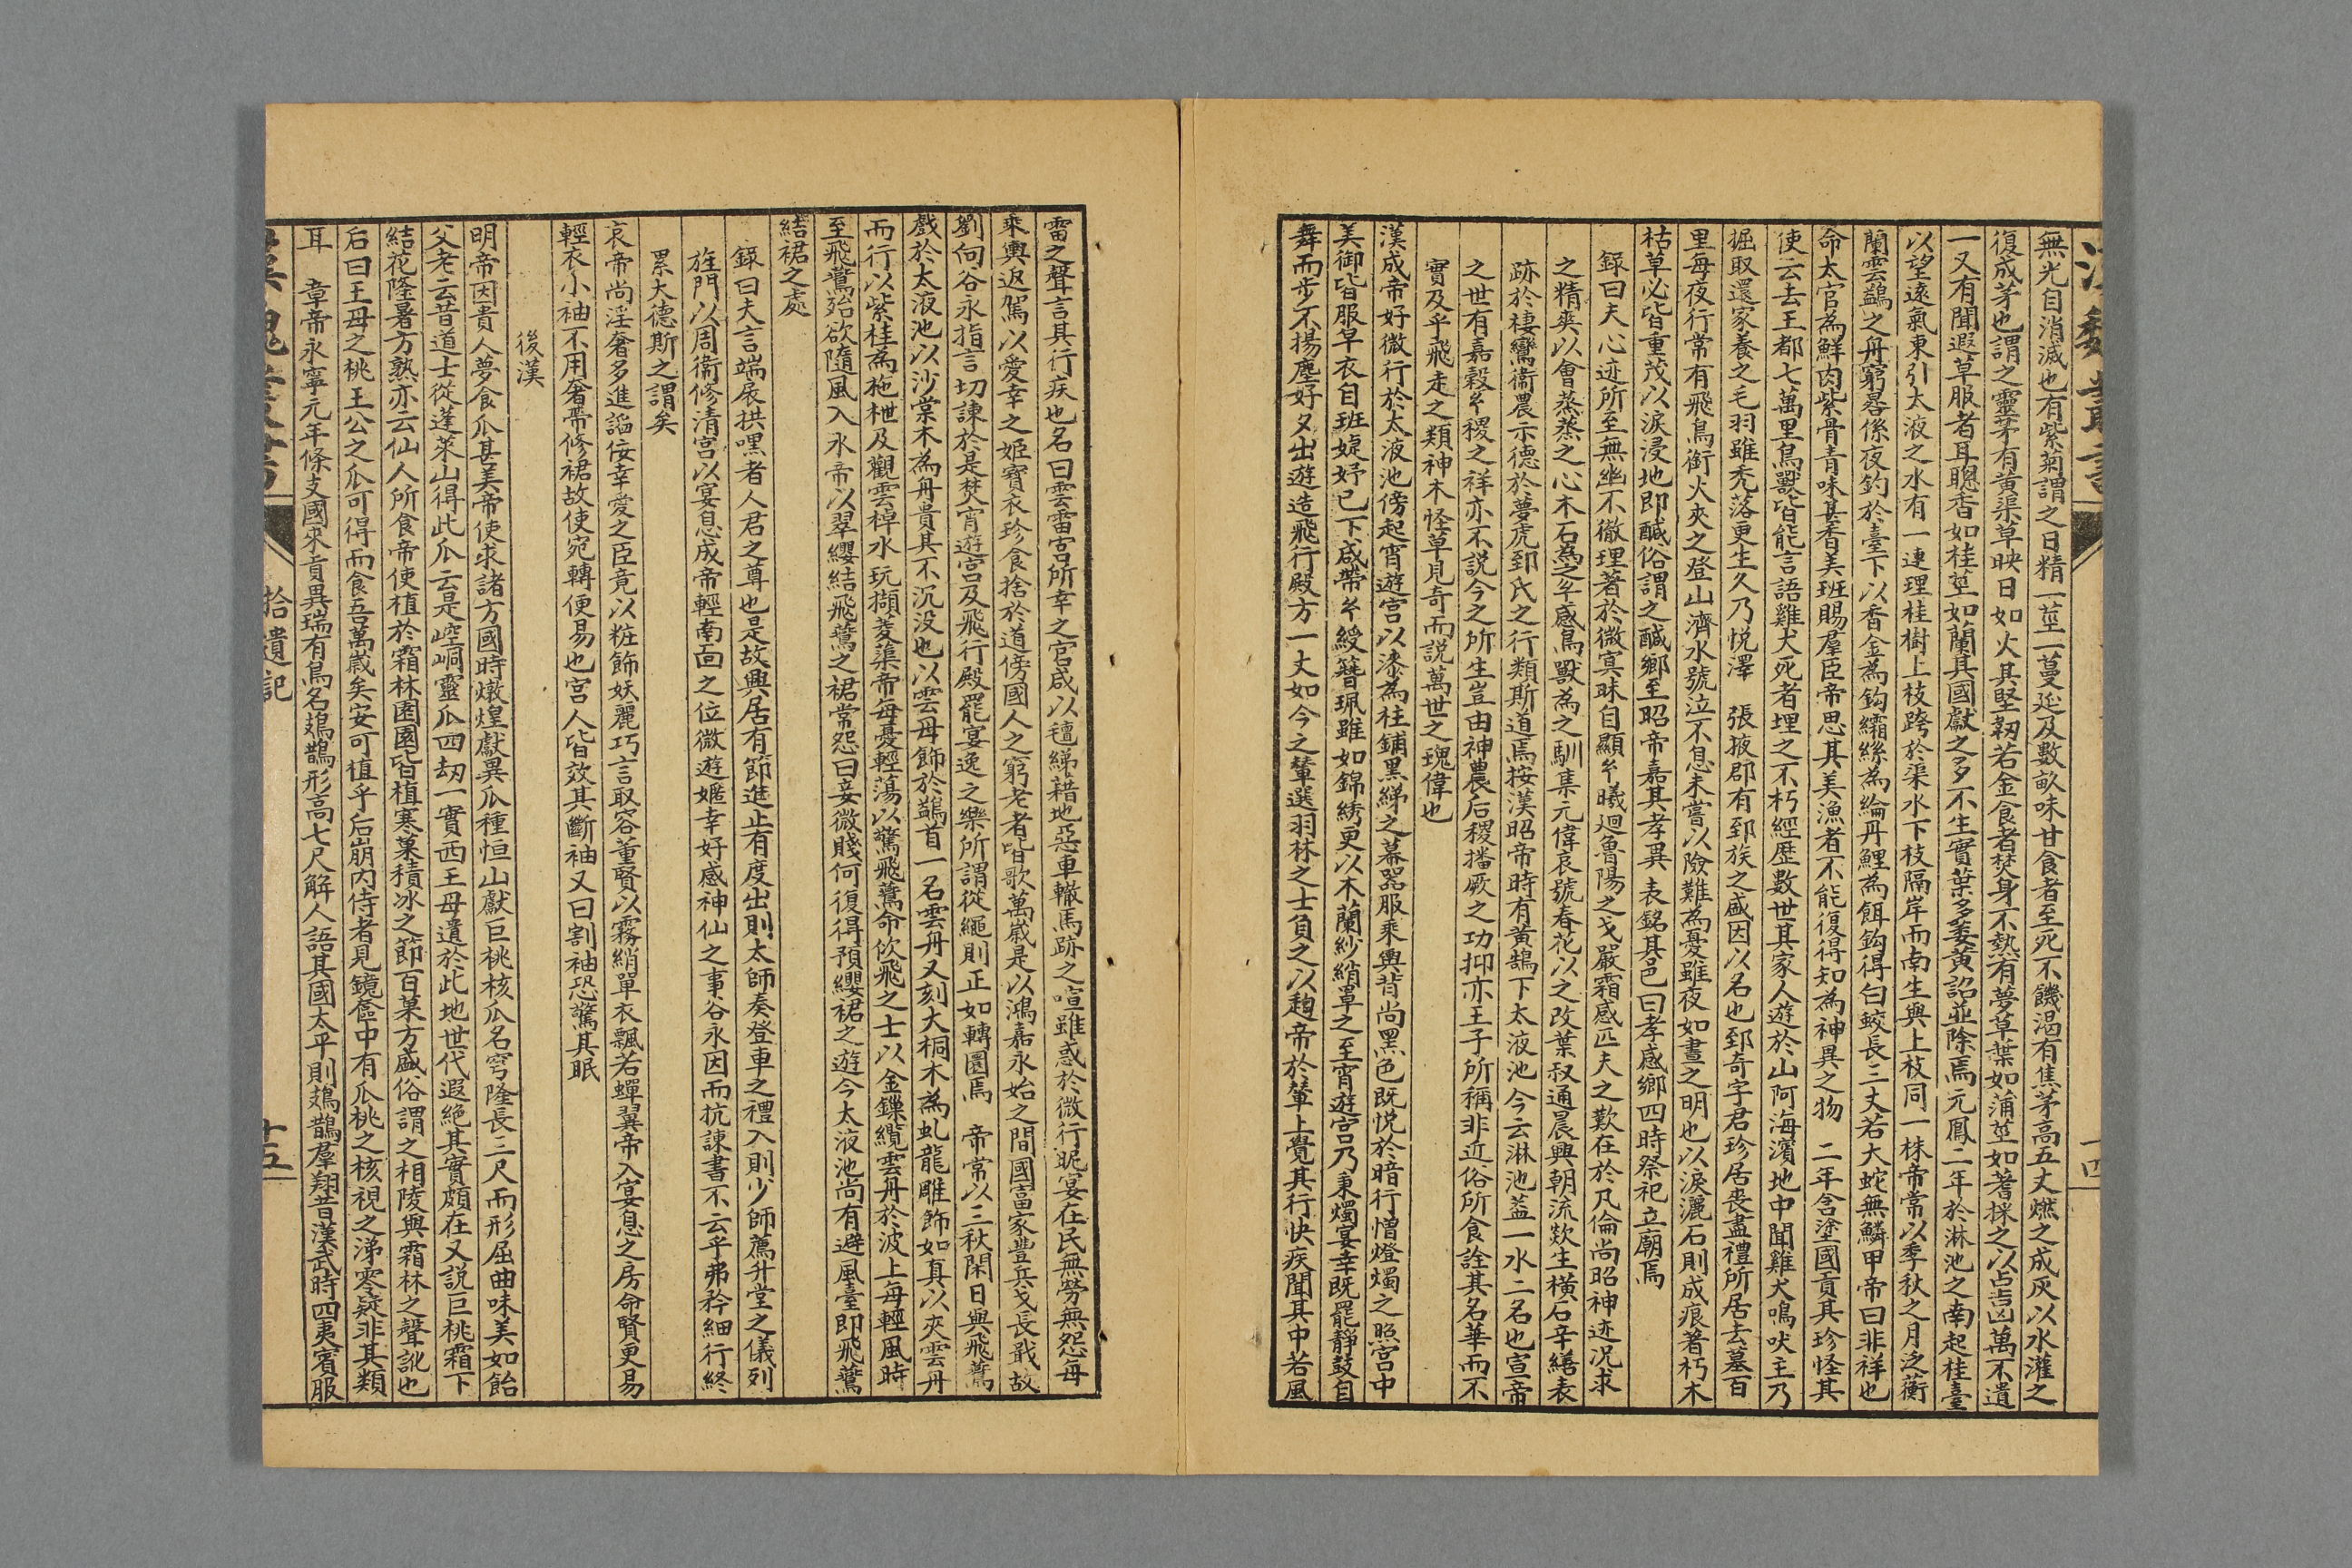 漢魏叢書
十四
無光自消滅也有紫菊謂之日精一莖一蔓延及數畝味甘食者至死不饑渴有焦茅高五丈燃之成灰以水灌之
復成茅也謂之靈茅有黃渠草映日如火其堅韌若金食者焚身不熱有夢草葉如蒲莖如蓍採之以占吉凶萬不遺
一又有聞遐草服者耳聰香如桂莖如蘭其國獻之多不生實葉多萎黃詔並除焉元鳳二年於淋池之南起桂臺
以望遠氣東引太液之水有一連理桂樹上枝跨於渠水下枝隔岸而南生與上枝同一株帝常以季秋之月泛蘅
蘭雲鷁之舟窮晷係夜釣於臺下以香金為鈎繻絲為綸丹鯉為餌鈎得白蛟長三丈若大蛇無鱗甲帝曰非祥也
命太官為鮮肉紫骨青味甚香美班賜羣臣帝思其美漁者不能復得知為神異之物 二年含塗國貢其珍怪其
使云去王都七萬里鳥獸皆能言語雞犬死者埋之不朽經歷數世其家人遊於山阿海濱地中聞雞犬鳴吠主乃
掘取還家養之毛羽雖禿落更生久乃悅澤 張掖郡有郅族之盛因以名也郅奇字君珍居喪盡禮所居去墓百
里每夜行常有飛鳥銜火夾之登山濟水號泣不息未嘗以險難為憂雖夜如晝之明也以淚灑石則成痕著朽木
枯草必皆重茂以淚浸地即鹹俗謂之鹹鄉至昭帝嘉其孝異表銘其邑曰孝感鄉四時祭祀立廟焉
錄曰夫心迹所至無幽不徹理著於微冥昧自顯夫曦迴魯陽之戈嚴霜感匹夫之歎在於凡倫尚昭神迹況求
之精爽以會蒸蒸之心木石為之乎感鳥獸為之馴集元偉哀號春花以之改葉叔通晨興朝流欻生橫石辛繕表
跡於棲鸞衛農示德於夢虎郅氏之行類斯道焉按漢昭帝時有黃鵠下太液池今云淋池蓋一水二名也宣帝
之世有嘉穀玄稷之祥亦不說今之所生豈由神農后稷播厥之功抑亦王子所稱非近俗所食詮其名華而不
實及乎飛走之類神木怪草見奇而說萬世之瑰偉也
漢成帝好微行於太液池傍起宵遊宮以漆為柱鋪黑綈之幕器服乘輿皆尚黑色既悅於暗行憎燈燭之照宮中
美御皆服皁衣自班婕妤已下咸帶玄綬簪珮雖如錦綉更以木蘭紗綃罩之至宵遊宮乃秉燭宴幸既罷靜鼓自
舞而步不揚塵好夕出遊造飛行殿方一丈如今之輦選羽林之士負之以趨帝於輦上覺其行快疾聞其中若風
雷之聲言其行疾也名曰雲雷宮所幸之宮咸以氊綈藉地惡車轍馬跡之喧雖惑於微行昵宴在民無勞無怨每
乘輿返駕以愛幸之姬寶衣珍食捨於道傍國人之窮老者皆歌萬歲是以鴻嘉永始之間國富家豐兵戈長戢故
劉向谷永指言切諫於是焚宵遊宮及飛行殿罷宴逸之樂所謂從繩則正如轉圜焉 帝常以三秋閑日與飛鷰
戲於太液池以沙棠木為舟貴其不沉沒也以雲母飾於鷁首一名雲舟又刻大桐木為虬龍雕飾如真以夾雲舟
而行以紫桂為柂枻及觀雲棹水玩擷菱蕖帝每憂輕蕩以驚飛鷰命佽飛之士以金鏁纜雲舟於波上每輕風時
至飛鷰殆欲隨風入水帝以翠纓結飛鷰之裙常怨曰妾微賤何復得預纓裙之遊今太液池尚有避風臺即飛鷰
結裙之處
錄曰夫言端扆拱嘿者人君之尊也是故興居有節進止有度出則太師奏登車之禮入則少師薦升堂之儀列
旌門以周衞修清宮以宴息成帝輕南面之位微遊嫟幸好惑神仙之事谷永因而抗諫書不云乎弗矜細行終
累大德斯之謂矣
哀帝尚淫奢多進謟佞幸愛之臣竟以粧飾妖麗巧言取容董賢以霧綃單衣飄若蟬翼帝入宴息之房命賢更易
輕衣小袖不用奢帶修裙故使宛轉便易也宮人皆效其斷袖又曰割袖恐驚其眠
後漢
明帝因貴人夢食瓜甚美帝使求諸方國時燉煌獻異瓜種恒山獻巨桃核瓜名穹隆長三尺而形屈曲味美如飴
父老云昔道士從蓬萊山得此瓜云是崆峒靈瓜四刼一實西王母遺於此地世代遐絕其實頗在又說巨桃霜下
結花隆暑方熟亦云仙人所食帝使植於霜林園園皆植寒菓積冰之節百菓方盛俗謂之相陵與霜林之聲訛也
后曰王母之桃王公之瓜可得而食吾萬歲矣安可植乎后崩內侍者見鏡奩中有瓜桃之核視之涕零疑非其類
耳 章帝永寧元年條支國來貢異瑞有鳥名鳷鵲形高七尺解人語其國太平則鳷鵲羣翔昔漢武時四夷賓服
漢魏叢書
拾遺記
十五